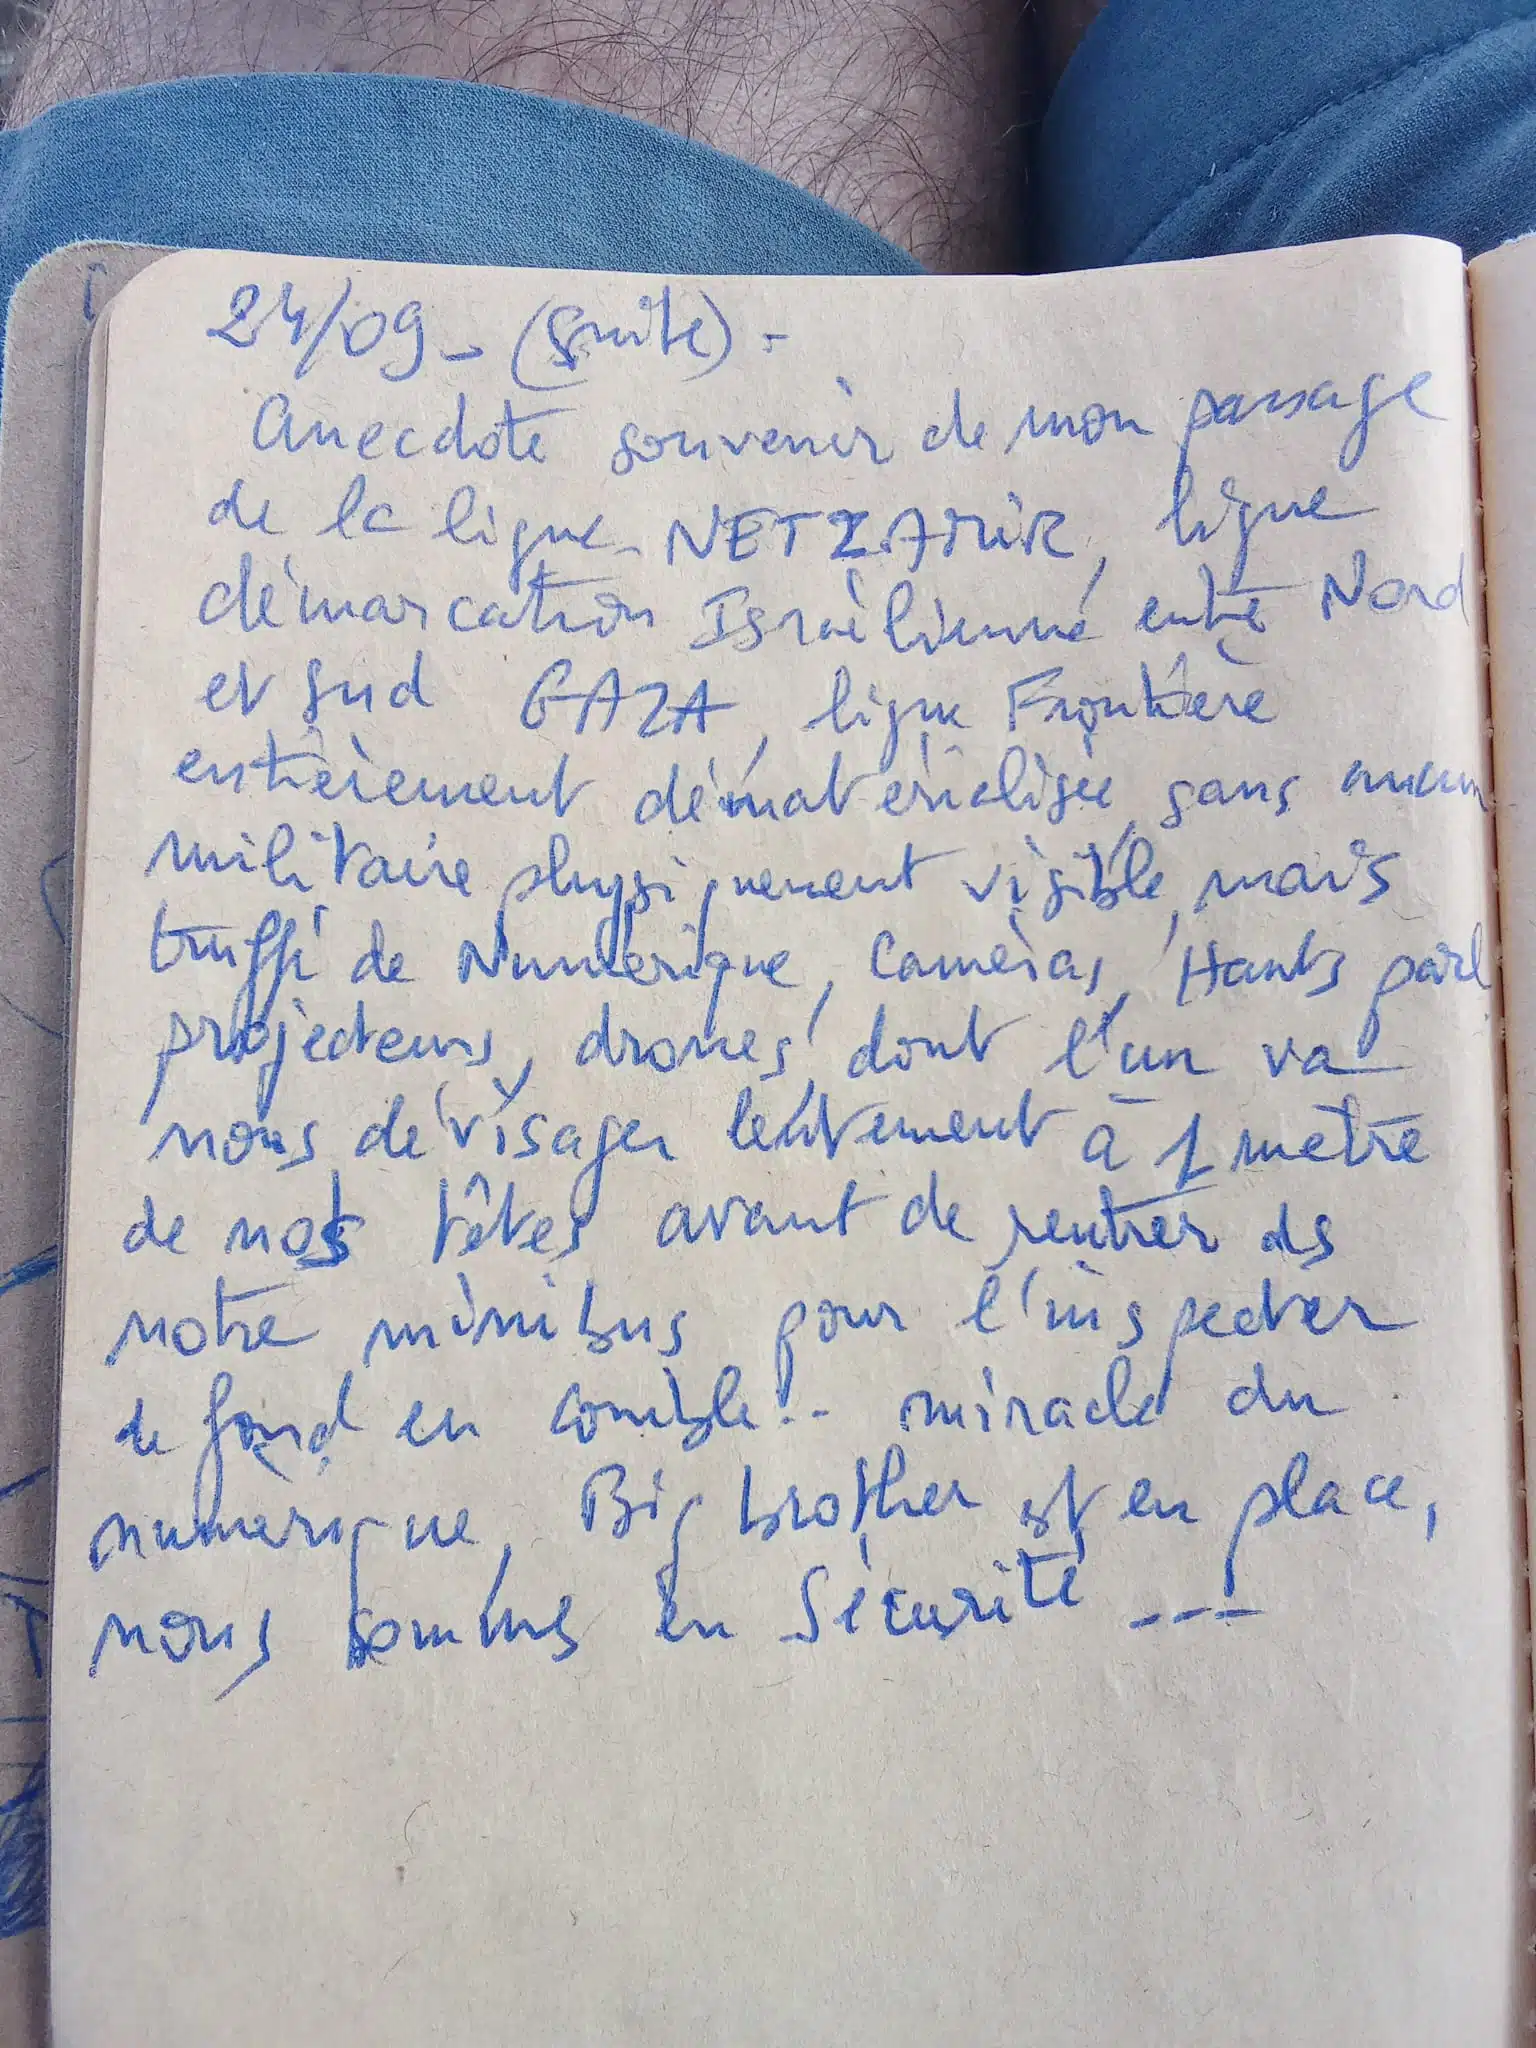 24/09 - (suite) -
Anecdote souvenir de mon passage
de la ligne NETZARIR, ligne
démarcation Israélienne entre Nord
et sud GAZA, ligne Frontière
entièrement dématérialisée, sans aucun
militaire physiquement visible, mais
truffé de Numérique, Caméras, Hauts parl
projecteurs, drones, dont l'un va
nous dévisager lentement à 1 mètre
de nos têtes avant de rentrer ds
notre minibus pour l'inspecter
de fond en comble.. miracle du
numérique, Big brother est en place,
nous sommes en Sécurité ---